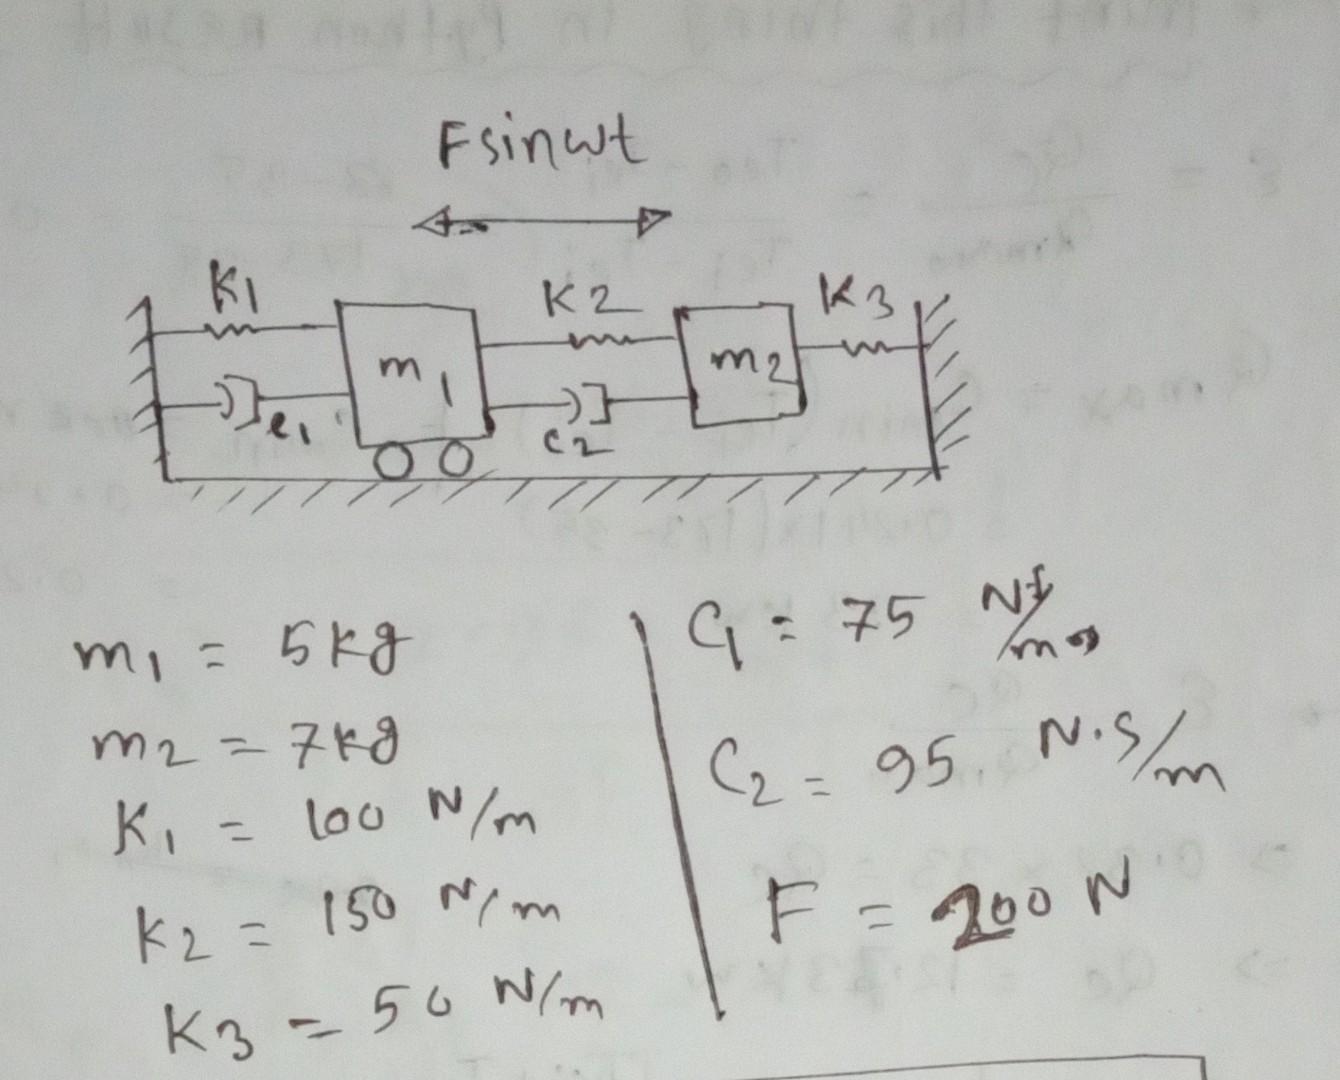 Fsinwt
K1 K2 K3
m1 m2
c1 c2
m1 = 5kg
m2 = 7kg
K1 = 100 N/m
K2 = 150 N/m
K3 = 50 N/m
C1 = 75
C2 = 95 N.S/m
F = 200 N